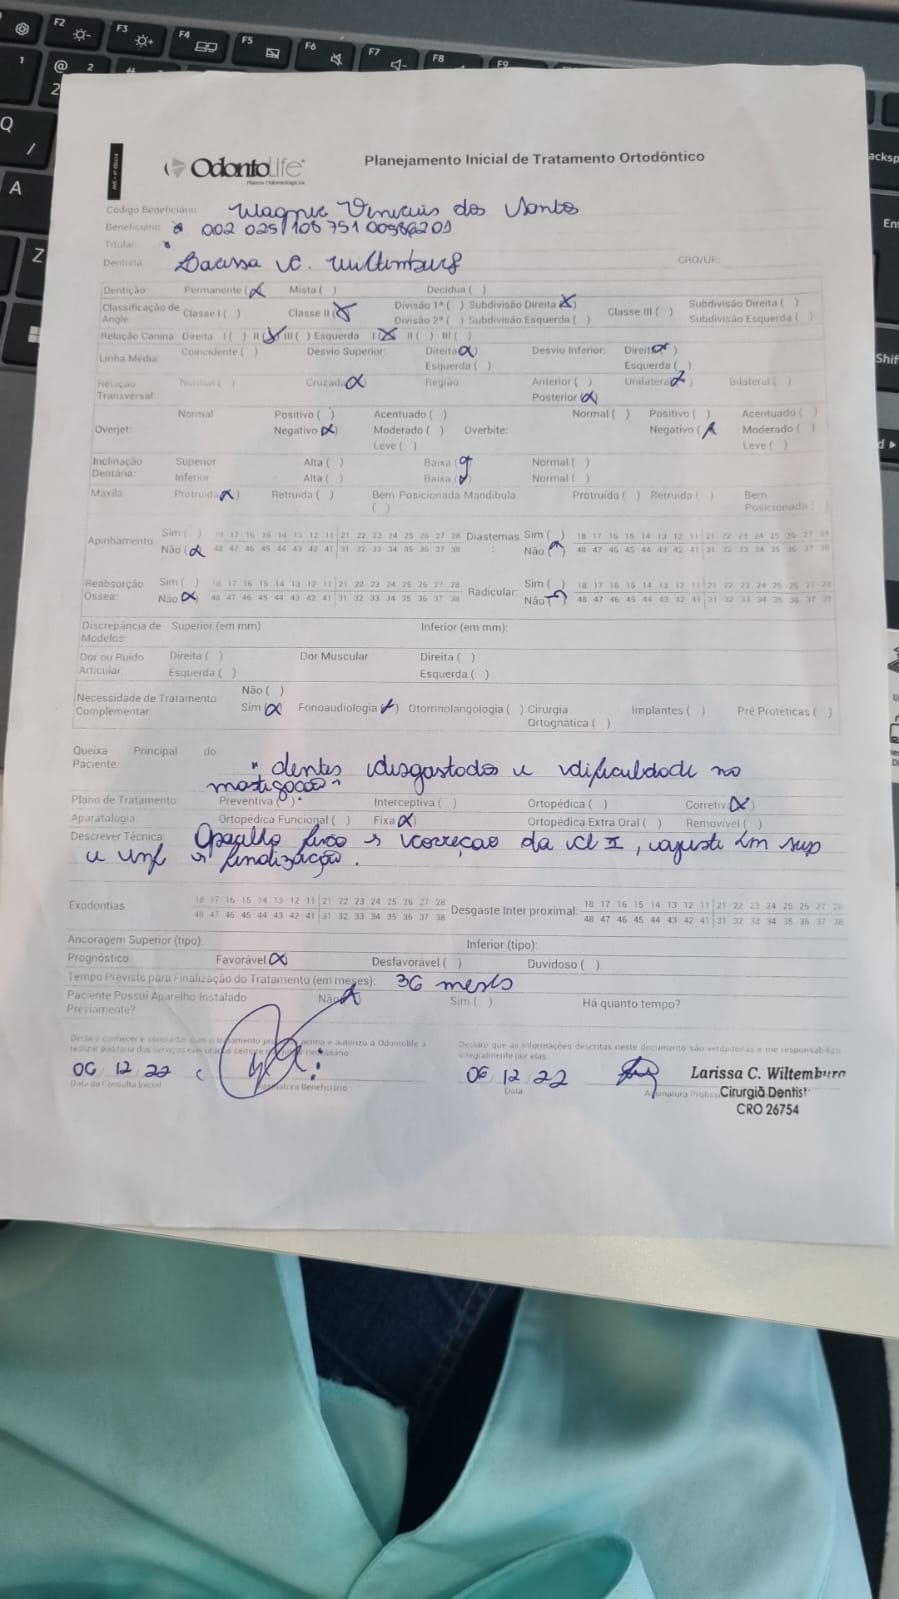 F2 F3 F4 F5 F6 F7 F8 F9
1 @ 2 #
Q /
A
Z
acksp
En
Shif
OdontoLife
Planos Odontológicos
Planejamento Inicial de Tratamento Ortodôntico
Código Beneficiário: Wagner Vinicius dos Santos
Beneficiário:
Titular:
Dentista: Larissa C. Wiltemburg CRO/UF:
Dentição: Permanente (x) Mista ( ) Decídua ( )
Classificação de Angle: Classe I ( ) Classe II (x) Divisão 1ª ( ) Subdivisão Direita (x) Classe III ( ) Subdivisão Direita ( )
Divisão 2ª ( ) Subdivisão Esquerda ( ) Subdivisão Esquerda ( )
Relação Canina: Direita I ( ) II (x) III ( ) Esquerda I (x) II ( ) III ( )
Linha Média: Coincidente ( ) Desvio Superior: Direita (x) Desvio Inferior: Direita (x)
Esquerda ( ) Esquerda ( )
Relação Transversal: Normal ( ) Cruzada (x) Região Anterior ( ) Unilateral (x) Bilateral ( )
Posterior (x)
Overjet: Normal Positivo ( ) Acentuado ( ) Overbite: Normal ( ) Positivo ( ) Acentuado ( )
Negativo (x) Moderado ( ) Negativo (x) Moderado ( )
Leve ( ) Leve ( )
Inclinação Dentária: Superior Alta ( ) Baixa (x) Normal ( )
Inferior Alta ( ) Baixa (x) Normal ( )
Maxila Protruida (x) Retruida ( ) Bem Posicionada ( ) Mandíbula Protruida ( ) Retruida ( ) Bem Posicionada ( )
Apinhamento: Sim ( ) 18 17 16 15 14 13 12 11 21 22 23 24 25 26 27 28 Diastemas: Sim ( ) 18 17 16 15 14 13 12 11 21 22 23 24 25 26 27 28
Não (x) 48 47 46 45 44 43 42 41 31 32 33 34 35 36 37 38 Não (x) 48 47 46 45 44 43 42 41 31 32 33 34 35 36 37 38
Reabsorção Óssea: Sim ( ) 18 17 16 15 14 13 12 11 21 22 23 24 25 26 27 28 Radicular: Sim ( ) 18 17 16 15 14 13 12 11 21 22 23 24 25 26 27 28
Não (x) 48 47 46 45 44 43 42 41 31 32 33 34 35 36 37 38 Não (x) 48 47 46 45 44 43 42 41 31 32 33 34 35 36 37 38
Discrepância de Modelos: Superior (em mm) Inferior (em mm):
Dor ou Ruído Articular: Direita ( ) Dor Muscular Direita ( )
Esquerda ( ) Esquerda ( )
Necessidade de Tratamento Complementar: Não ( )
Sim (x) Fonoaudiologia (x) Otorrinolangologia ( ) Cirurgia Ortognática ( ) Implantes ( ) Pré Protéticas ( )
Queixa Principal do Paciente: "dentes desgastados e dificuldade na
mastigação"
Plano de Tratamento: Preventiva ( ) Interceptiva ( ) Ortopédica ( ) Corretiva (x)
Aparatologia: Ortopédica Funcional ( ) Fixa (x) Ortopédica Extra Oral ( ) Removível ( )
Descrever Técnica: Aparelho fixo → correção da cl II, ajuste Lm sup
e inf → finalização.
Exodontias 18 17 16 15 14 13 12 11 21 22 23 24 25 26 27 28 Desgaste Inter proximal: 18 17 16 15 14 13 12 11 21 22 23 24 25 26 27 28
48 47 46 45 44 43 42 41 31 32 33 34 35 36 37 38 48 47 46 45 44 43 42 41 31 32 33 34 35 36 37 38
Ancoragem Superior (tipo): Inferior (tipo):
Prognóstico Favorável (x) Desfavorável ( ) Duvidoso ( )
Tempo Previsto para Finalização do Tratamento (em meses): 36 meses
Paciente Possui Aparelho Instalado Previamente? Não (x) Sim ( ) Há quanto tempo?
Declaro que as informações descritas neste documento são verdadeiras e me responsabilizo integralmente por elas.
06 12 22
Data da Consulta Inicial
Assinatura Beneficiário
06 12 22
Data
Larissa C. Wiltemburg
Cirurgiã Dentista
CRO 26754